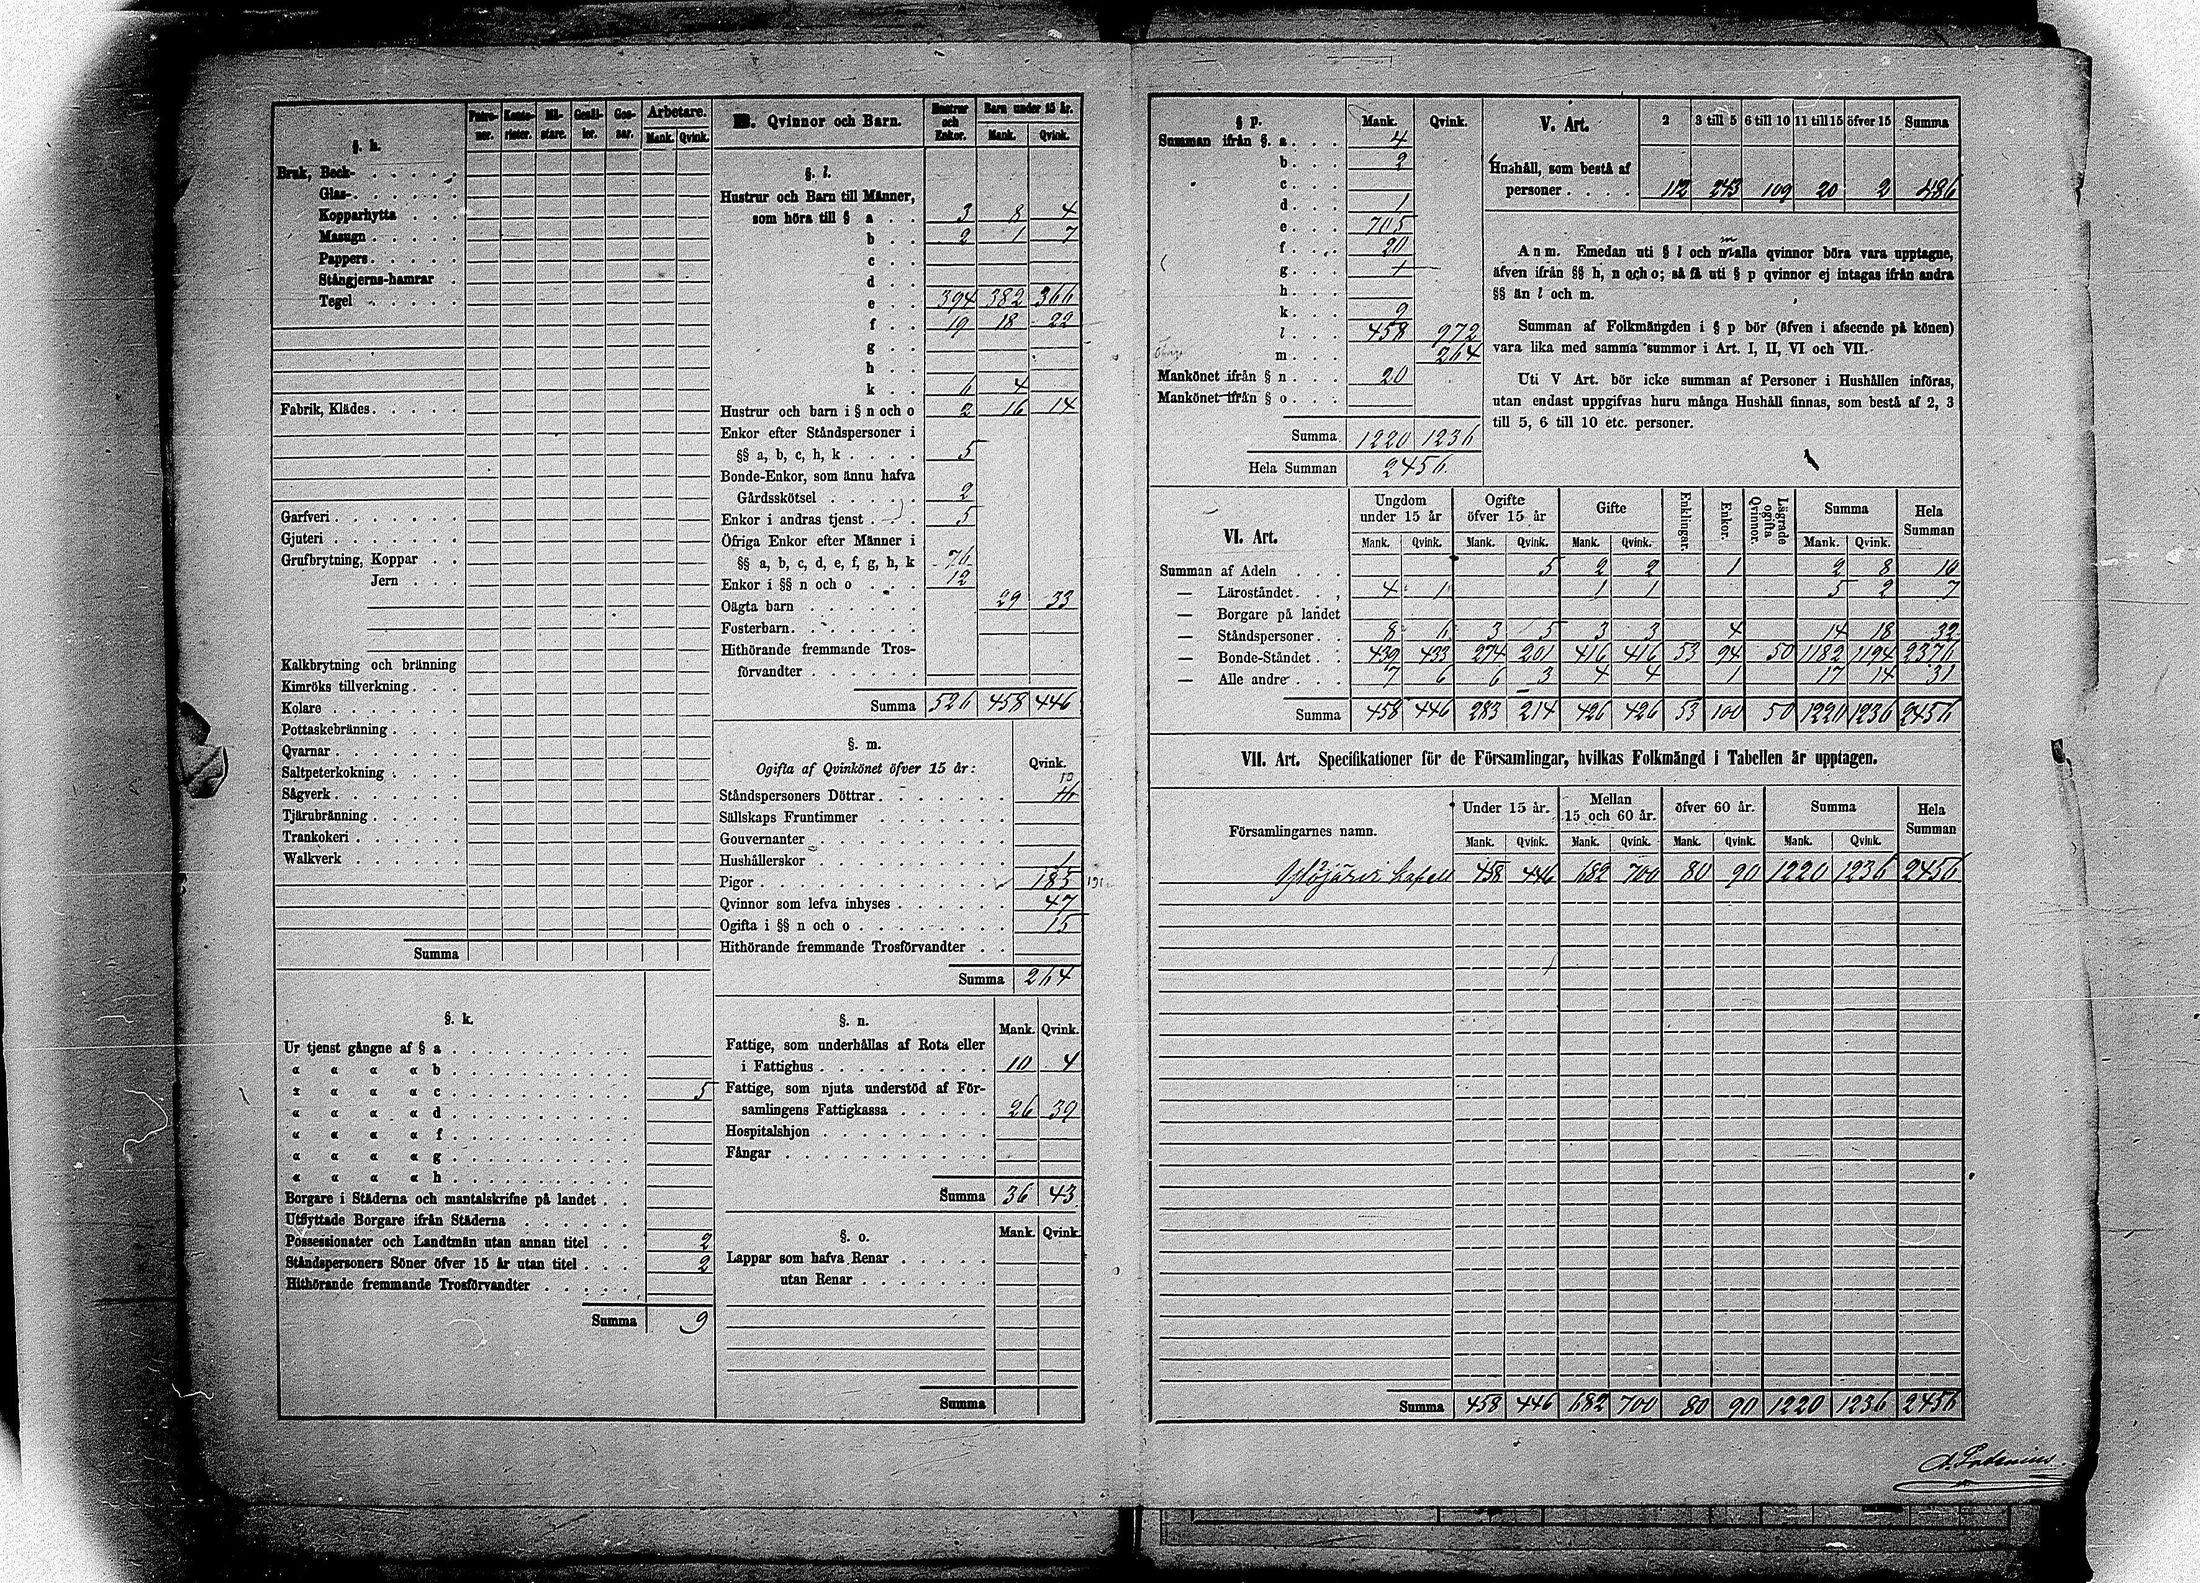 §. h.
Patro-ner. Konto-rister. Mä-stare. Gesäl-ler. Gos-sar. Arbetare. Mank. Qvink.
Bruk, Beck-
Glas-
Kopparhytta
Masugn
Pappers
Stångjerns-hamrar
Tegel
Fabrik, Klädes
Garfveri
Gjuteri
Grufbrytning, Koppar
Jern
Kalkbrytning och bränning
Kimröks tillverkning
Kolare
Pottaskebränning
Qvarnar
Saltpeterkokning
Sågverk
Tjärubränning
Trankokeri
Walkverk
Summa
§. k.
Ur tjenst gångne af § a
« « « « b
« « « « c 5
« « « « d
« « « « f
« « « « g
« « « « h
Borgare i Städerna och mantalskrifne på landet
Utflyttade Borgare ifrån Städerna
Possessionater och Landtmän utan annan titel 2
Ståndspersoners Söner öfver 15 år utan titel 2
Hithörande fremmande Trosförvandter
Summa 9
Qvinnor och Barn. Hustrur och Enkor. Barn under 15 år. Mank. Qvink.
§. l.
Hustrur och Barn till Männer,
som höra till § a 3 8 4
b 2 1 7
c
d
e 394 382 366
f 19 18 22
g
h
k 6 4
Hustrur och barn i § n och o 2 16 14
Enkor efter Ståndspersoner i
§§ a, b, c, h, k 5
Bonde-Enkor, som ännu hafva
Gårdsskötsel 2
Enkor i andras tjenst 5
Öfriga Enkor efter Männer i
§§ a, b, c, d, e, f, g, h, k 76
Enkor i §§ n och o 12
Oägta barn 29 33
Fosterbarn
Hithörande fremmande Tros-
förvandter
Summa 526 458 446
§. m.
Ogifta af Qvinkönet öfver 15 år: Qvink.
Ståndspersoners Döttrar
Sällskaps Fruntimmer
Gouvernanter
Hushållerskor
Pigor 185
Qvinnor som lefva inhyses 47
Ogifta i §§ n och o 15
Hithörande fremmande Trosförvandter
Summa 264
§. n. Mank. Qvink.
Fattige, som underhållas af Rota eller
i Fattighus 10 4
Fattige, som njuta understöd af För-
samlingens Fattigkassa 26 39
Hospitalshjon
Fångar
Summa 36 43
§. o. Mank. Qvink.
Lappar som hafva Renar
utan Renar
Summa
§ p. Mank. Qvink.
Summan ifrån §. a 4
b 2
c
d 1
e 705
f 20
g 1
h
k 9
l 458 972
m 264
Mankönet ifrån § n 20
Mankönet ifrån § o
Summa 1220 1236
Hela Summan 2456
V. Art. 2 3 till 5 6 till 10 11 till 15 öfver 15 Summa
Hushåll, som bestå af
personer 112 243 109 20 2 486
Anm. Emedan uti § l och m alla qvinnor böra vara upptagne,
äfven ifrån §§ h, n och o; så få uti § p qvinnor ej intagas ifrån andra
§§ än l och m.
Summan af Folkmängden i § p bör (äfven i afseende på könen)
vara lika med samma summor i Art. I, II, VI och VII.
Uti V Art. bör icke summan af Personer i Hushållen införas,
utan endast uppgifvas huru många Hushåll finnas, som bestå af 2, 3
till 5, 6 till 10 etc. personer.
VI. Art. Ungdom under 15 år Ogifte öfver 15 år Gifte Enklingar. Enkor. Lägrade ogifta Qvinnor. Summa Hela Summan
Mank. Qvink. Mank. Qvink. Mank. Qvink. Mank. Qvink.
Summan af Adeln 5 2 2 1 2 8 10
— Läroståndet 4 1 1 1 5 2 7
— Borgare på landet
— Ståndspersoner 8 6 3 5 3 3 4 14 18 32
— Bonde-Ståndet 439 433 274 201 416 416 53 94 50 1182 1194 2376
— Alle andre 7 6 6 3 4 4 1 17 14 31
Summa 458 446 283 214 426 426 53 100 50 1220 1236 2456
VII. Art. Specifikationer för de Församlingar, hvilkas Folkmängd i Tabellen är upptagen.
Församlingarnes namn. Under 15 år. Mellan 15 och 60 år. öfver 60 år. Summa Hela Summan
Mank. Qvink. Mank. Qvink. Mank. Qvink. Mank. Qvink.
458 446 682 700 80 90 1220 1236 2456
Summa 458 446 682 700 80 90 1220 1236 2456